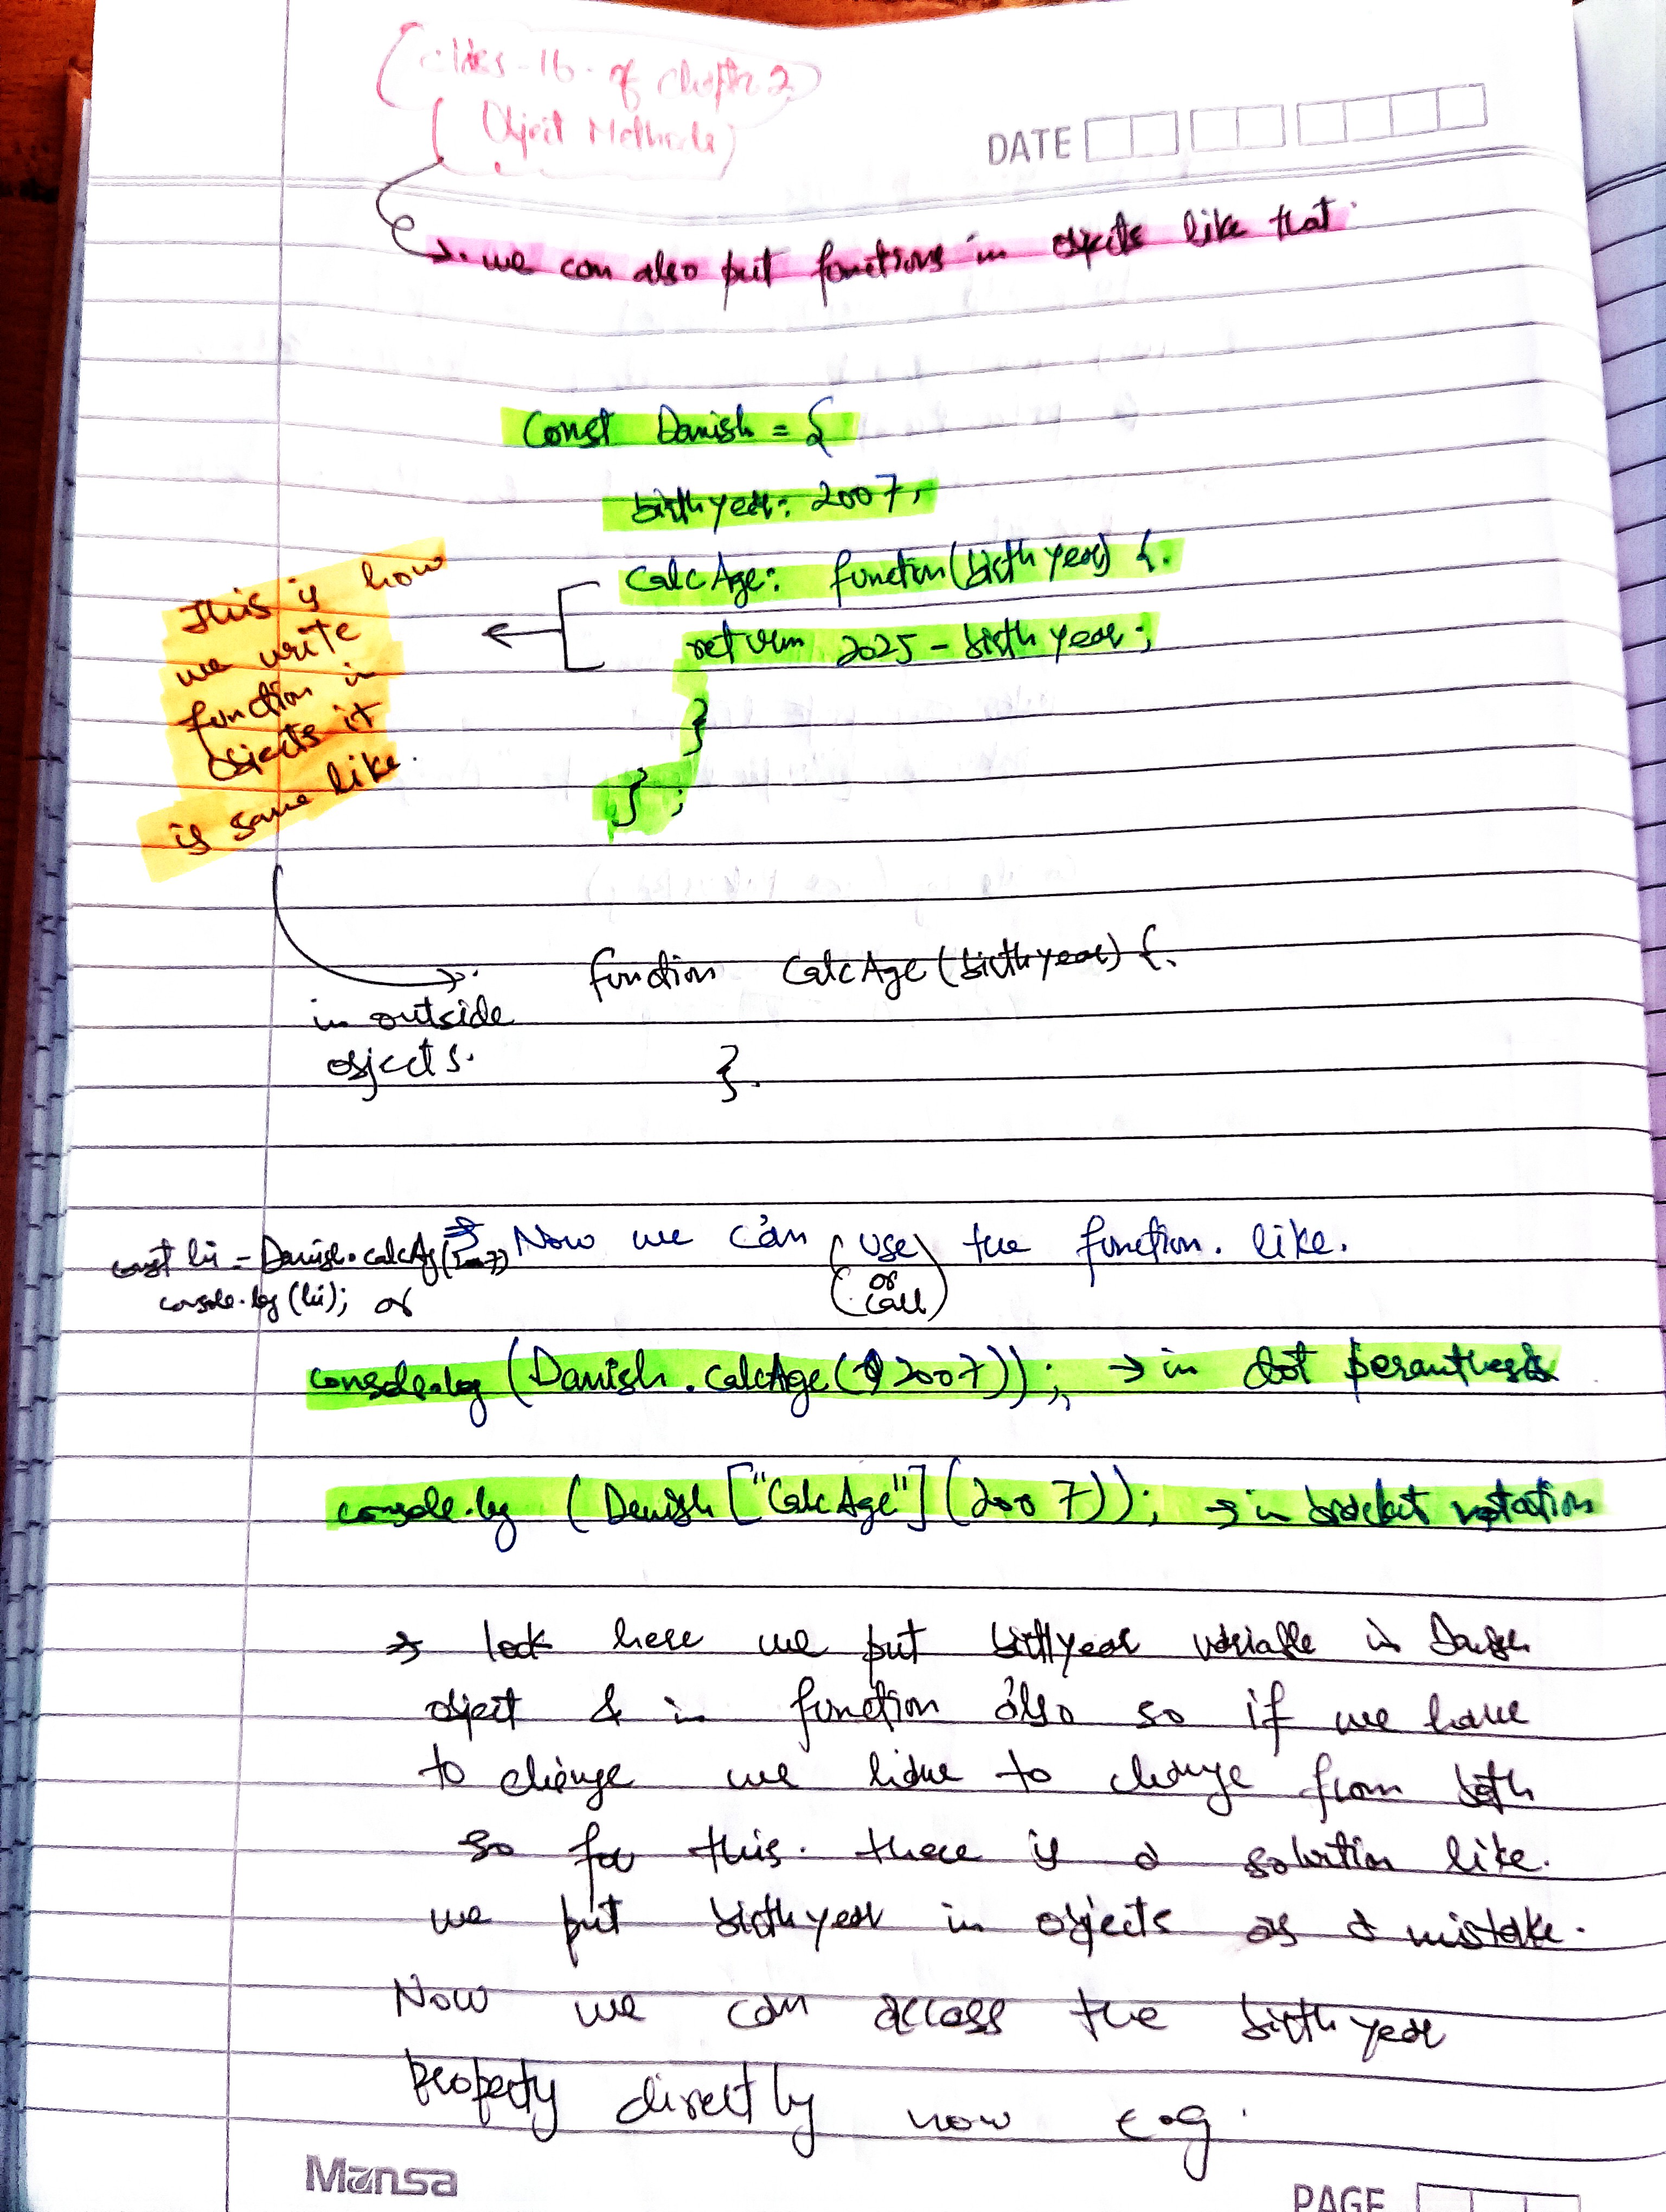 (class-16 of chapter 2)
(Object Methods)
DATE
→ we can also put functions in objects like that.
Const Danish = {
birthyear: 2007,
CalcAge: function(birthyear) {
return 2025 - birthyear;
}
};
This is how
we write
function in
objects it
is same like.
function CalcAge (birthyear) {
in outside
objects.
}.
→ Now we can (use) the function. like.
(or
call)
const = Danish.calcAg(2007)
console.log( ); or
console.log (Danish.CalcAge(2007)); → in dot peranthesis
console.log (Danish ["CalcAge"] (2007)); → in bracket notation
→ look here we put birthyear variable in Danish
object & in function also so if we have
to change we have to change from both
so for this. there is a solution like.
we put birthyear in objects as a mistake.
Now we can access the birthyear
property directly now e.g.
Mansa
PAGE